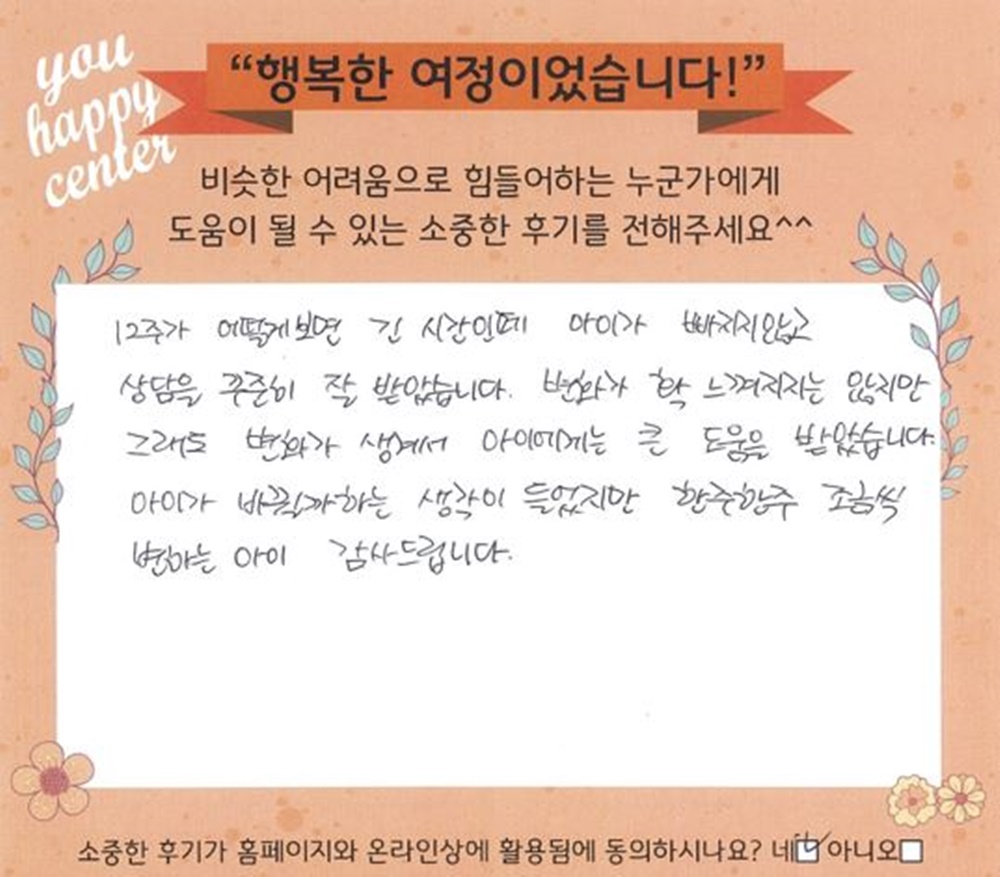 you
happy
center
“행복한 여정이었습니다!”
비슷한 어려움으로 힘들어하는 누군가에게
도움이 될 수 있는 소중한 후기를 전해주세요^^
12주가 어떻게보면 긴 시간인데 아이가 빠지지않고
상담을 꾸준히 잘 받았습니다. 변화가 확 느껴지지는 않지만
그래도 변화가 생겨서 아이에게는 큰 도움을 받았습니다.
아이가 바뀔까하는 생각이 들었지만 한주한주 조금씩
변하는 아이 감사드립니다.
소중한 후기가 홈페이지와 온라인상에 활용됨에 동의하시나요? 네☑ 아니오☐